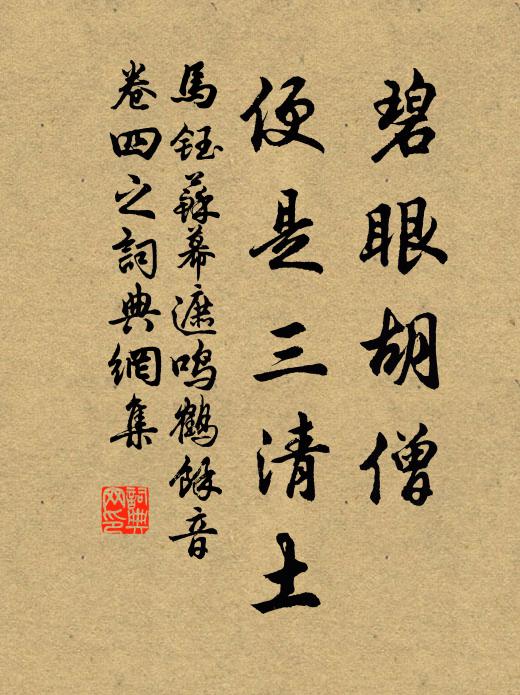 碧眼胡僧
便是三清士
馬鈺蘇幕遮鳴鶴餘音
卷四之詞典網集
詞典網印